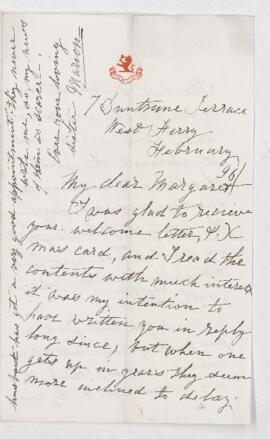 7 Duntrune Terrace
West Ferry
February
96/
My dear Margaret
I was glad to recieve
your welcome letter, & X
mas card, and I read the
contents with much interest
it was my intention to
have written you in reply
long since, but when one
gets up in years they seem
more inclined to delay.
husband has got a very good appointment. They never
write me, as my news
of them is scarce.
Ever your loving
sister Marion